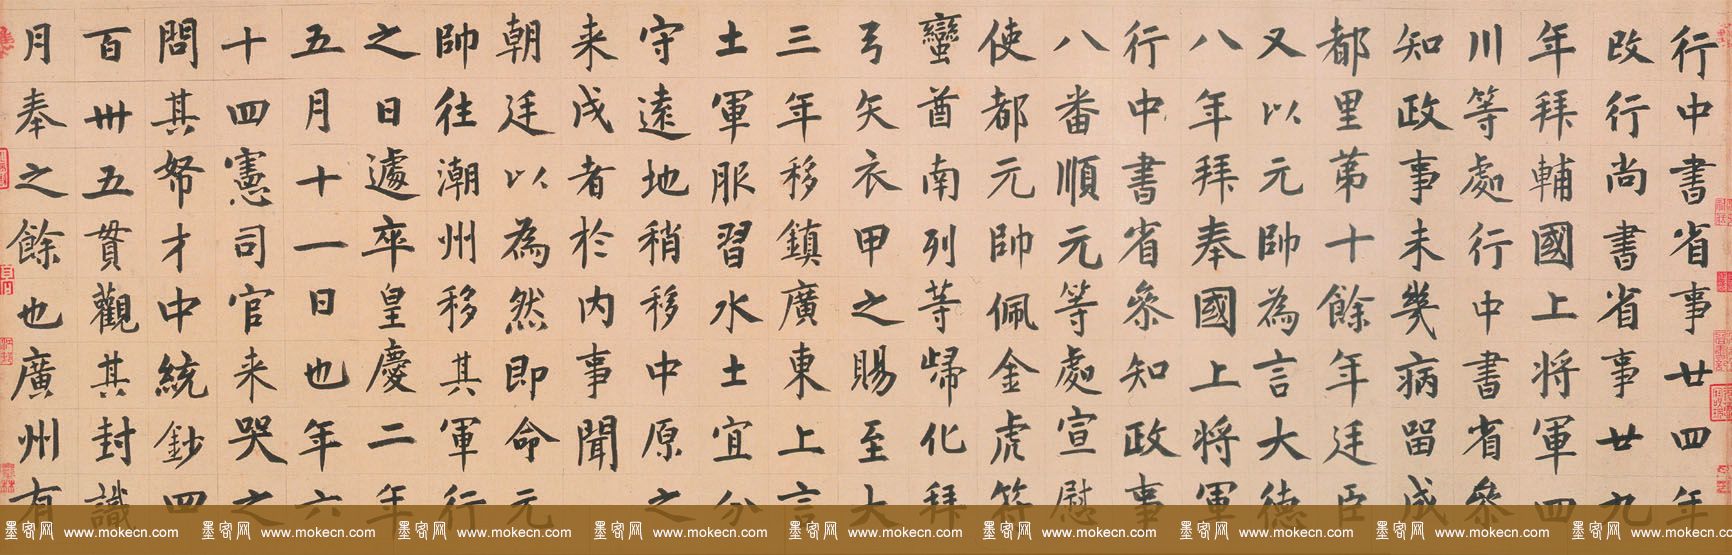 行中書省事廿四年
改行尚書省事廿九
年拜輔國上将軍四
川等處行中書省叅
知政事未幾病留成
都里第十餘年廷臣
又以元帥為言大德
八年拜奉國上将軍
行中書省叅知政事
八番順元等處宣慰
使都元帥佩金虎符
蠻酋南列等歸化拜
弓矢衣甲之賜至大
三年移鎮廣東上言
土軍服習水土宜分
守遠地稍移中原之
来戍者於内事聞
朝廷以為然即命元
帥往潮州移其軍行
之日遽卒皇慶二年
五月十一日也年六
十四憲司官来哭之
問其帑才中統鈔四
百卅五貫觀其封識
月奉之餘也廣州有
墨客网 www.mokecn.com 墨客网 www.mokecn.com 墨客网 www.mokecn.com 墨客网 www.mokecn.com 墨客网 www.mokecn.com 墨客网 www.mokecn.com 墨客网 www.mokecn.com 墨客网 www.mokecn.com 墨客网 www.mokecn.con